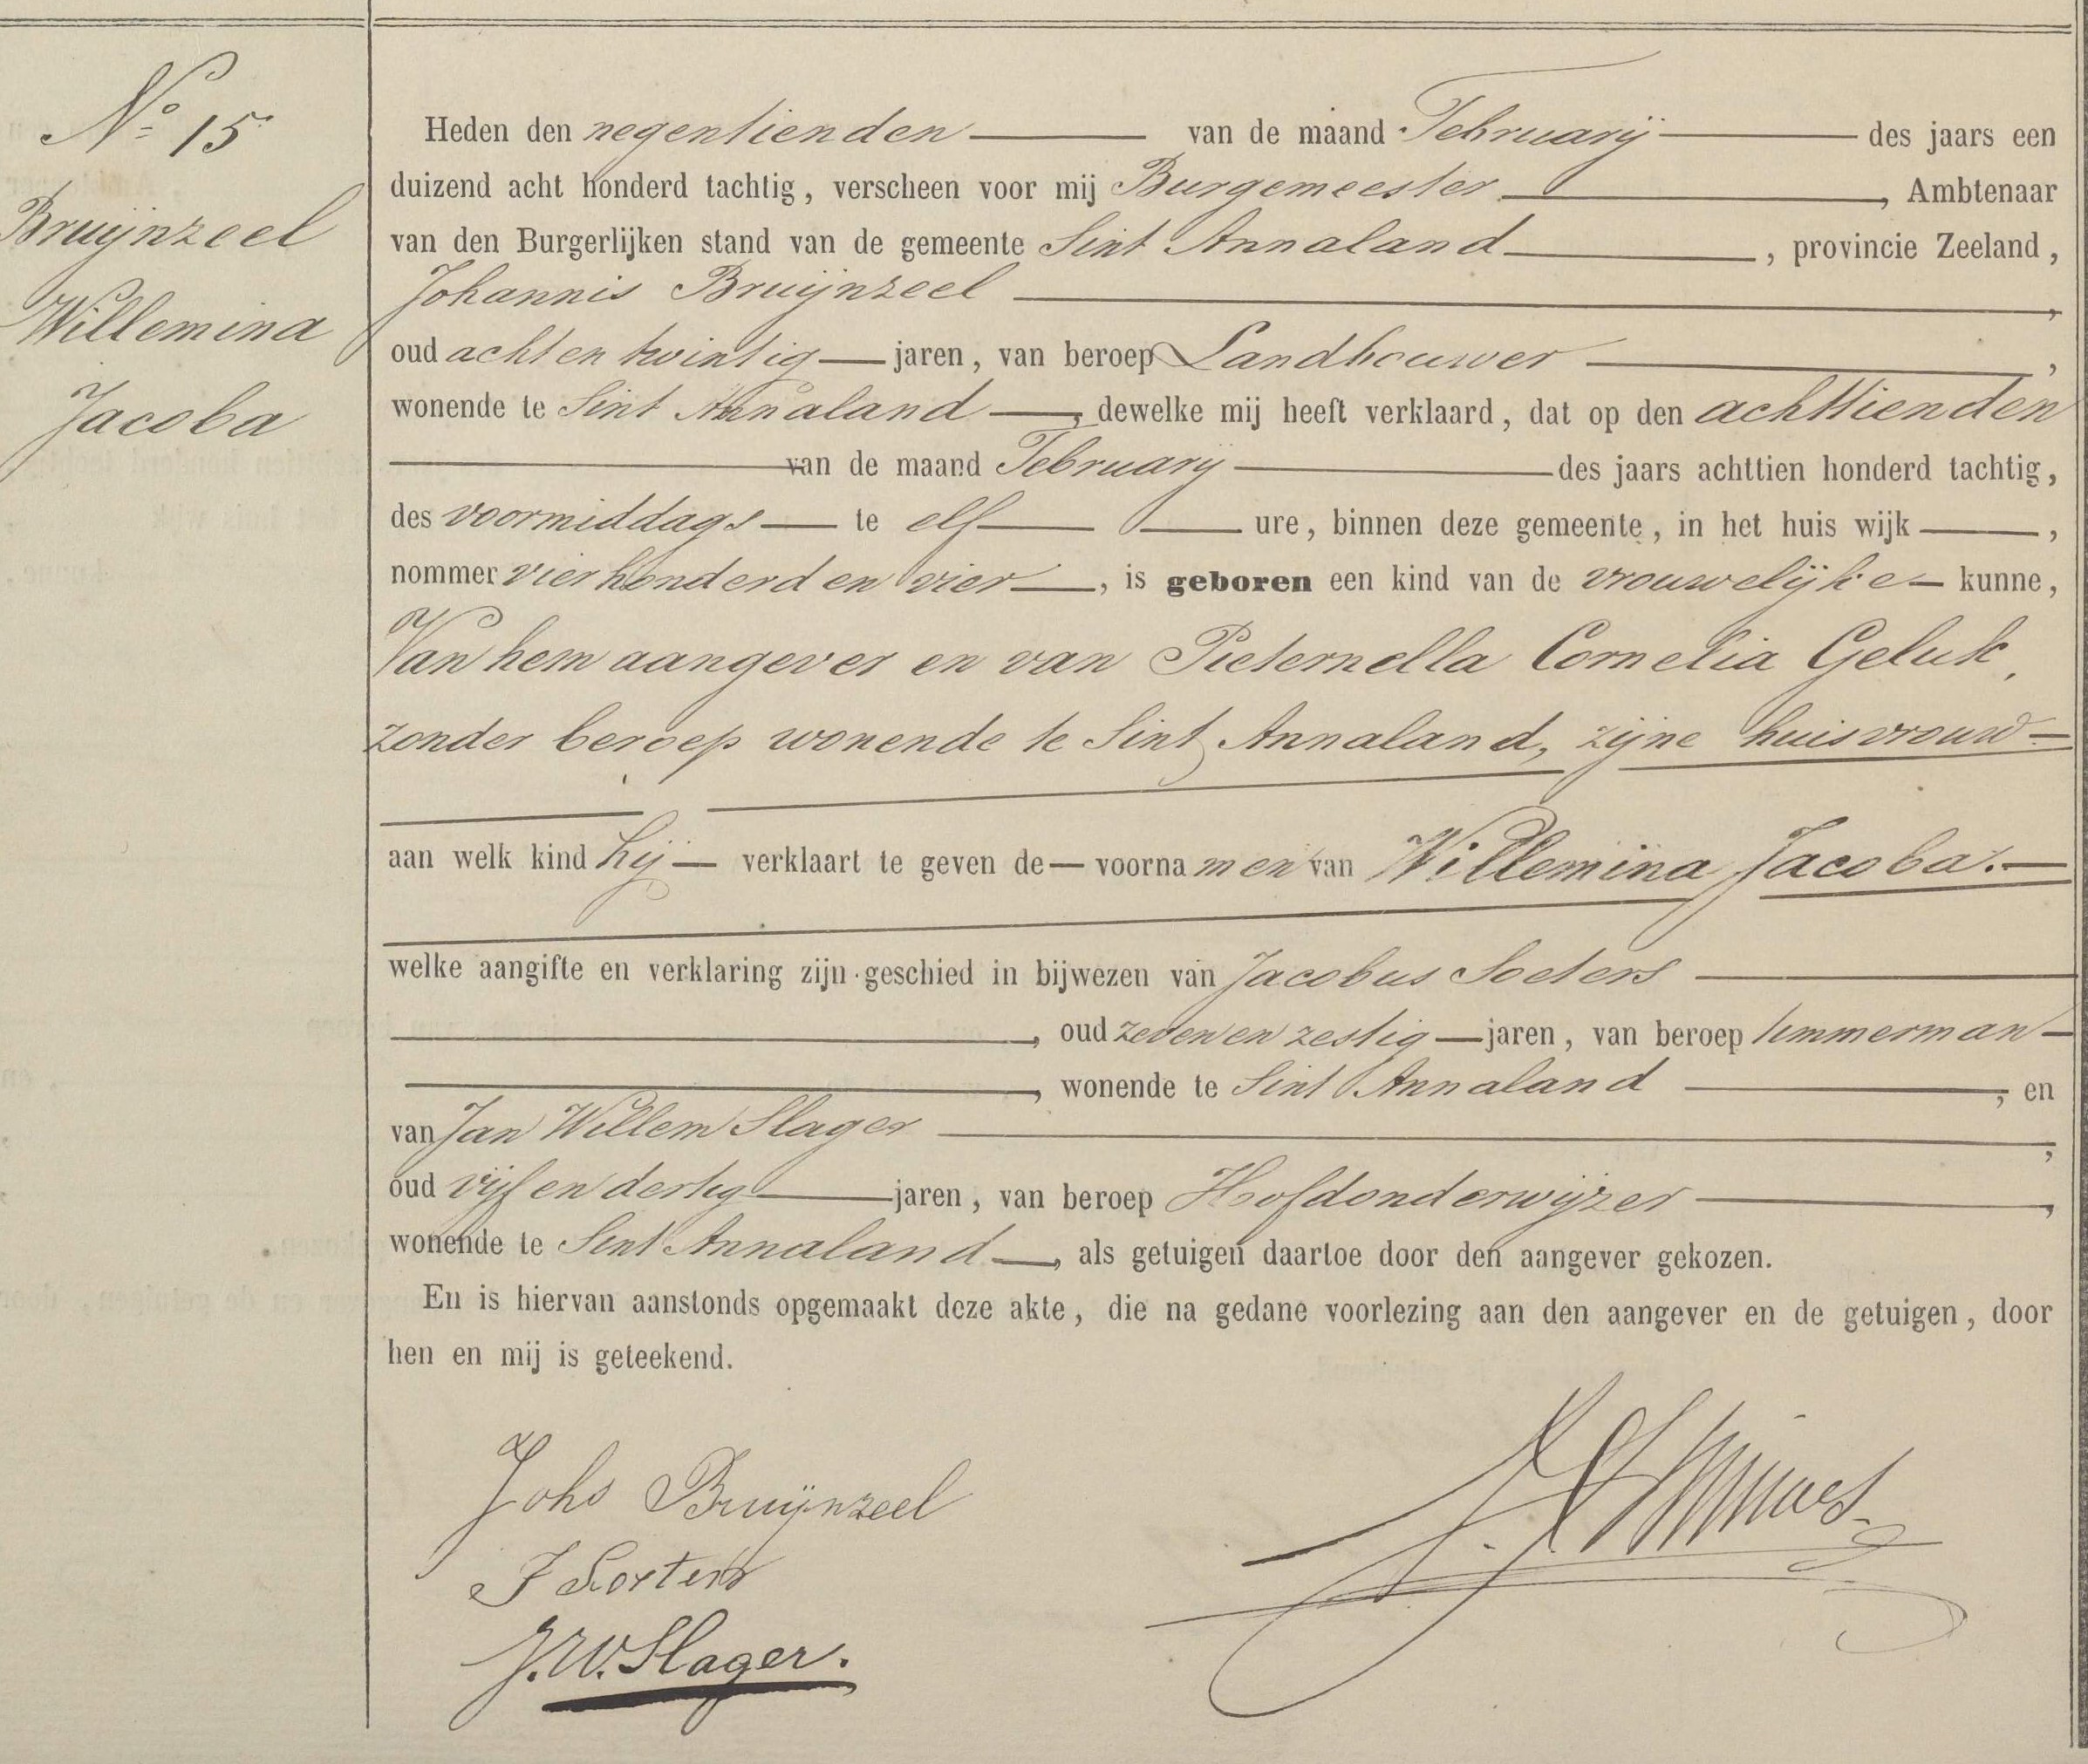 No 15
Bruijnzeel
Willemina
Jacoba
Heden den negentienden van de maand Februarij des jaars een
duizend acht honderd tachtig, verscheen voor mij Burgemeester, Ambtenaar
van den Burgerlijken stand van de gemeente Sint Annaland, provincie Zeeland,
Johannis Bruijnzeel,
oud acht en twintig jaren, van beroep Landbouwer,
wonende te Sint Annaland, dewelke mij heeft verklaard, dat op den achttienden
van de maand Februarij des jaars achttien honderd tachtig,
des voormiddags te elf ure, binnen deze gemeente, in het huis wijk ,
nommer vierhonderd en vier, is geboren een kind van de vrouwelijke kunne,
Van hem aangever en van Pieternella Cornelia Geluk,
zonder beroep wonende te Sint Annaland, zijne huisvrouw
aan welk kind hij verklaart te geven de voornamen van Willemina Jacoba.
welke aangifte en verklaring zijn geschied in bijwezen van Jacobus Soeters
, oud zeven en zestig jaren, van beroep timmerman
, wonende te Sint Annaland, en
van Jan Willem Slager,
oud vijf en dertig jaren, van beroep Hoofdonderwijzer,
wonende te Sint Annaland, als getuigen daartoe door den aangever gekozen.
En is hiervan aanstonds opgemaakt deze akte, die na gedane voorlezing aan den aangever en de getuigen, door
hen en mij is geteekend.
Johs Bruijnzeel
J Soeters
J.W. Slager.